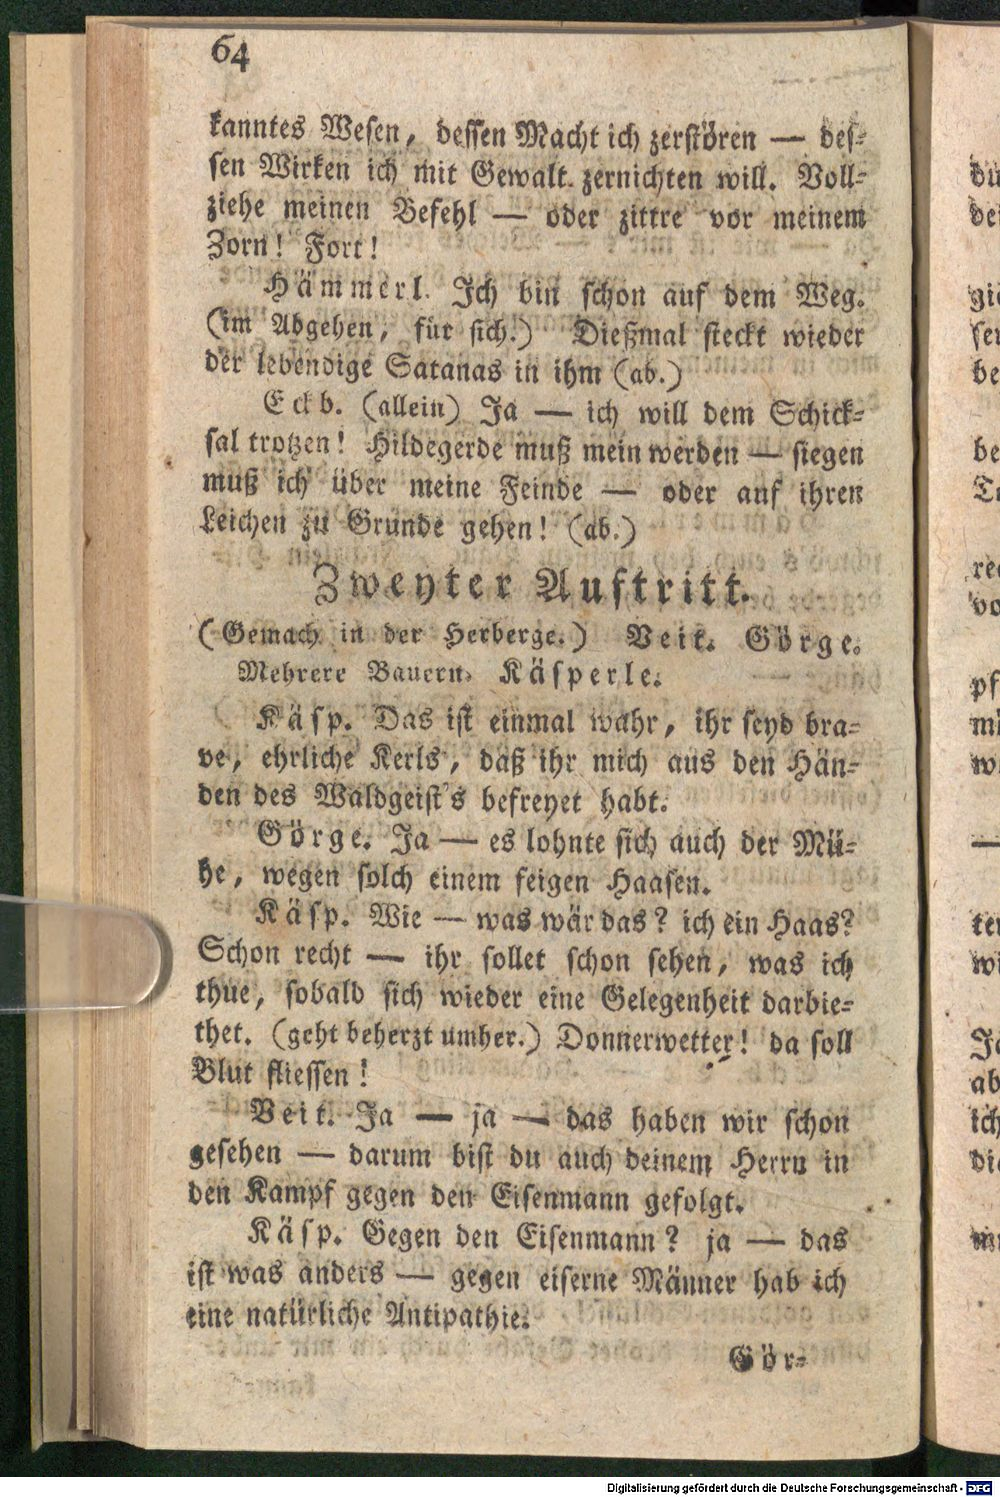 64
kanntes Wesen, dessen Macht ich zerstören — des-
sen Wirken ich mit Gewalt zernichten will. Voll-
ziehe meinen Befehl — oder zittre vor meinem
Zorn! Fort!
Hämmerl. Ich bin schon auf dem Weg.
(im Abgehen, für sich.) Dießmal steckt wieder
der lebendige Satanas in ihm (ab.)
Eckb. (allein) Ja — ich will dem Schick-
sal trotzen! Hildegerde muß mein werden — siegen
muß ich über meine Feinde — oder auf ihren
Leichen zu Grunde gehen! (ab.)
Zweyter Auftritt.
(Gemach in der Herberge.) Veit. Görge.
Mehrere Bauern. Käsperle.
Käsp. Das ist einmal wahr, ihr seyd bra-
ve, ehrliche Kerls, daß ihr mich aus den Hän-
den des Waldgeist's befreyet habt.
Görge. Ja — es lohnte sich auch der Mü-
he, wegen solch einem feigen Haasen.
Käsp. Wie — was wär das? ich ein Haas?
Schon recht — ihr sollet schon sehen, was ich
thue, sobald sich wieder eine Gelegenheit darbie-
thet. (geht beherzt umher.) Donnerwetter! da soll
Blut fliessen!
Veit. Ja — ja — das haben wir schon
gesehen — darum bist du auch deinem Herrn in
den Kampf gegen den Eisenmann gefolgt.
Käsp. Gegen den Eisenmann? ja — das
ist was anders — gegen eiserne Männer hab ich
eine natürliche Antipathie.
Gör-
Digitalisierung gefördert durch die Deutsche Forschungsgemeinschaft - DFG